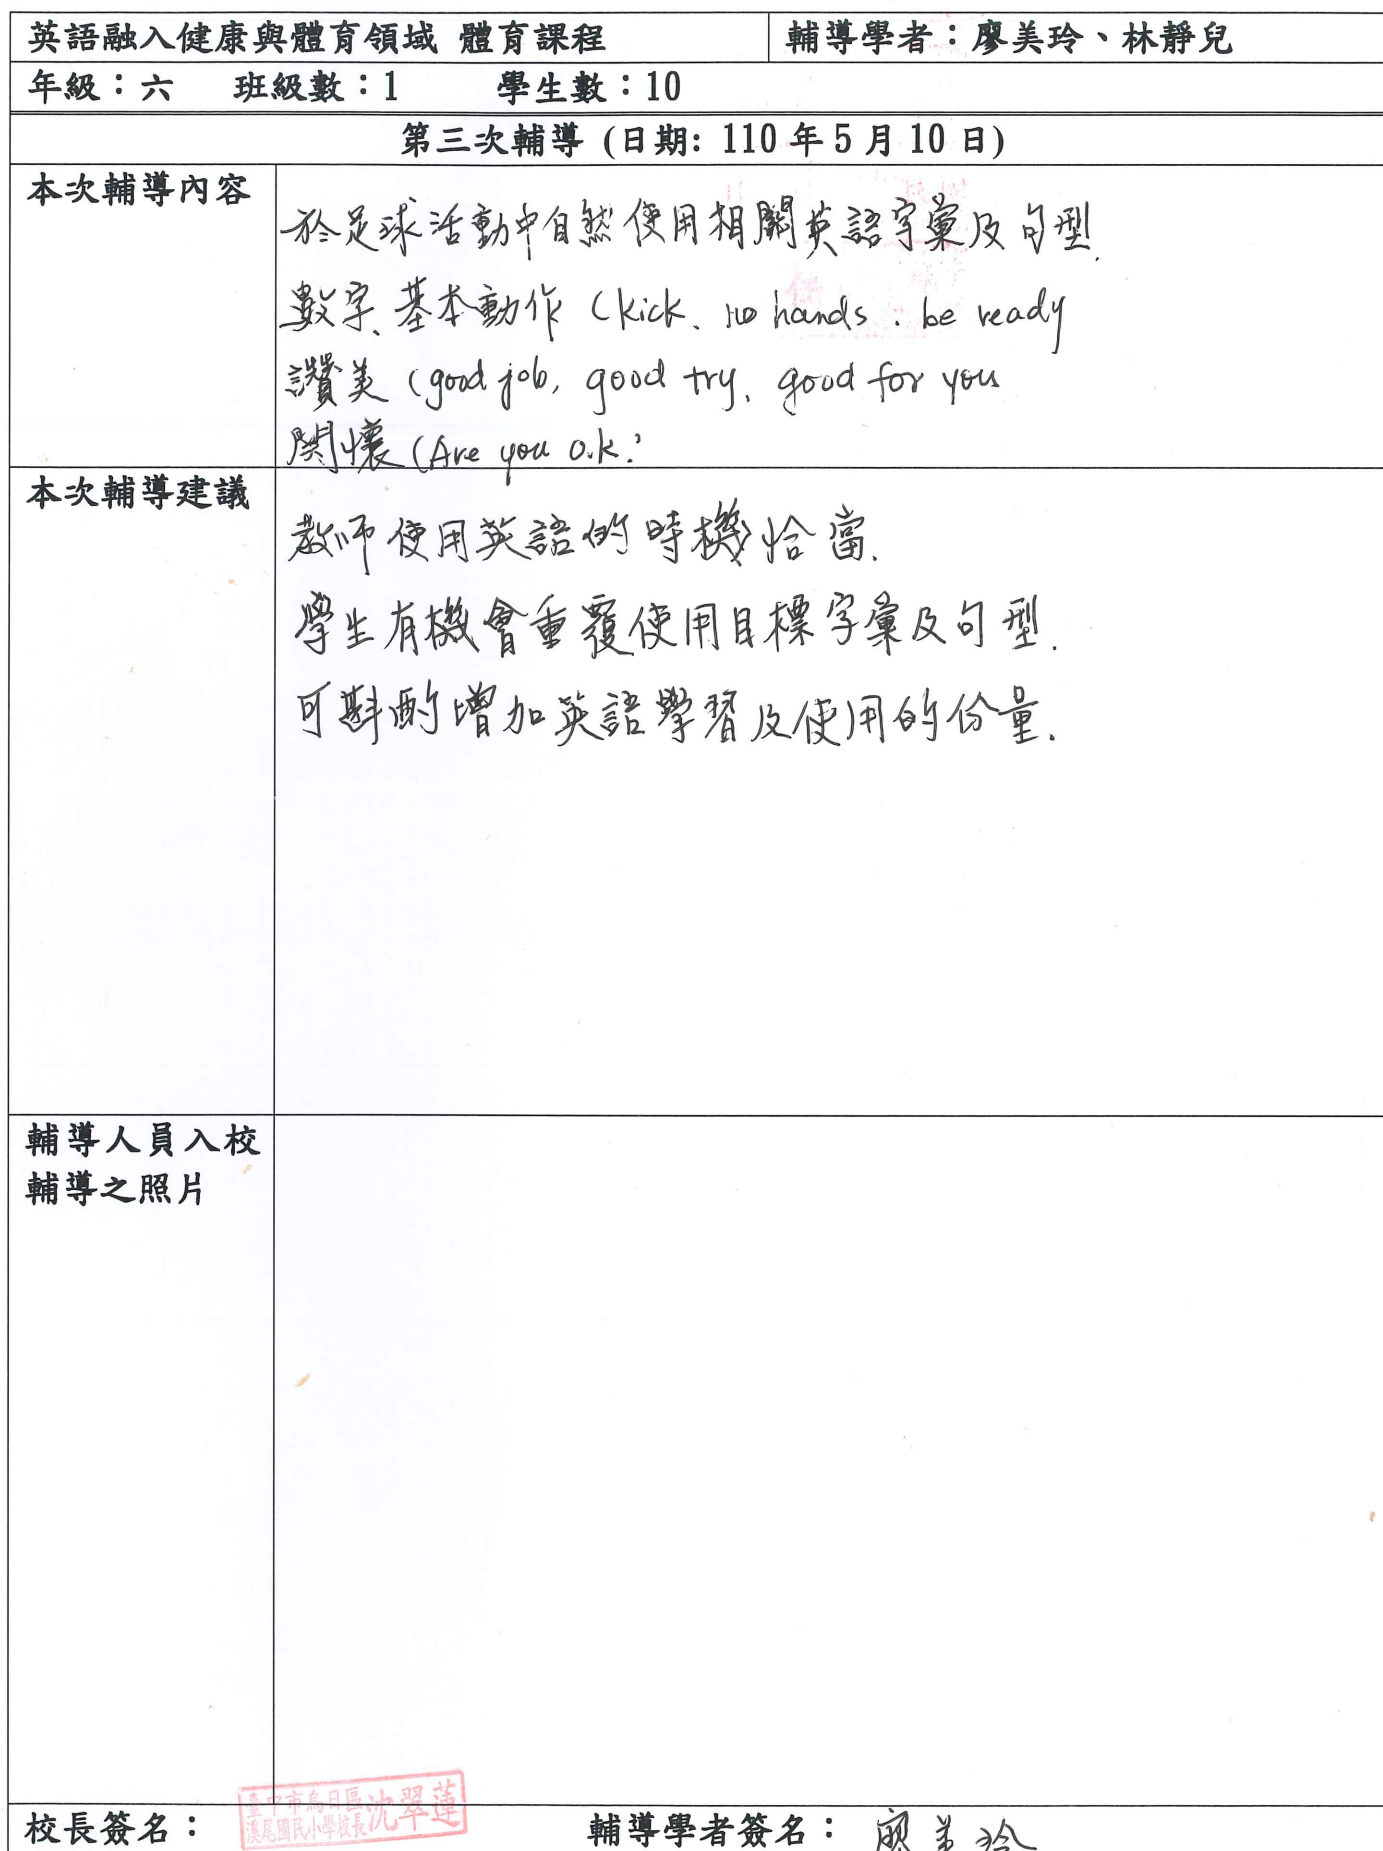 英語融入健康與體育領域 體育課程
輔導學者：廖美玲、林靜兒
年級：六 班級數：1 學生數：10
第三次輔導 (日期: 110 年 5 月 10 日)
本次輔導內容
於足球活動中自然使用相關英語字彙及句型.
數字、基本動作 (kick、no hands . be ready
讚美 (good job, good try, good for you
關懷 (Are you o.k.?
本次輔導建議
教师使用英語的時機恰當.
學生有機會重覆使用目標字彙及句型.
可斟酌增加英語學習及使用的份量.
輔導人員入校
輔導之照片
校長簽名：
臺中市烏日區
溪尾國民小學校長
沈翠蓮
輔導學者簽名： 廖美玲